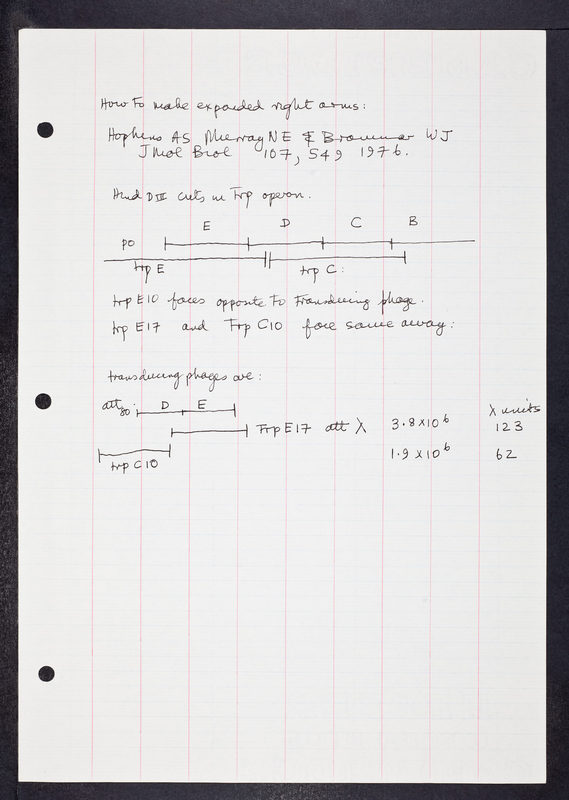 How to make expanded right arms:
Hopkins AS Murray NE & Brammar WJ
J Mol Biol 107, 549 1976.
Hind III cuts in Trp operon.
E D C B
po
trp E trp C:
trp E10 faces opposite to transducing phage.
trp E17 and Trp C10 face same away:
transducing phages are:
att80 D E λ units
Trp E17 att λ 3.8 x 10^6 123
1.9 x 10^6 62
trp C10